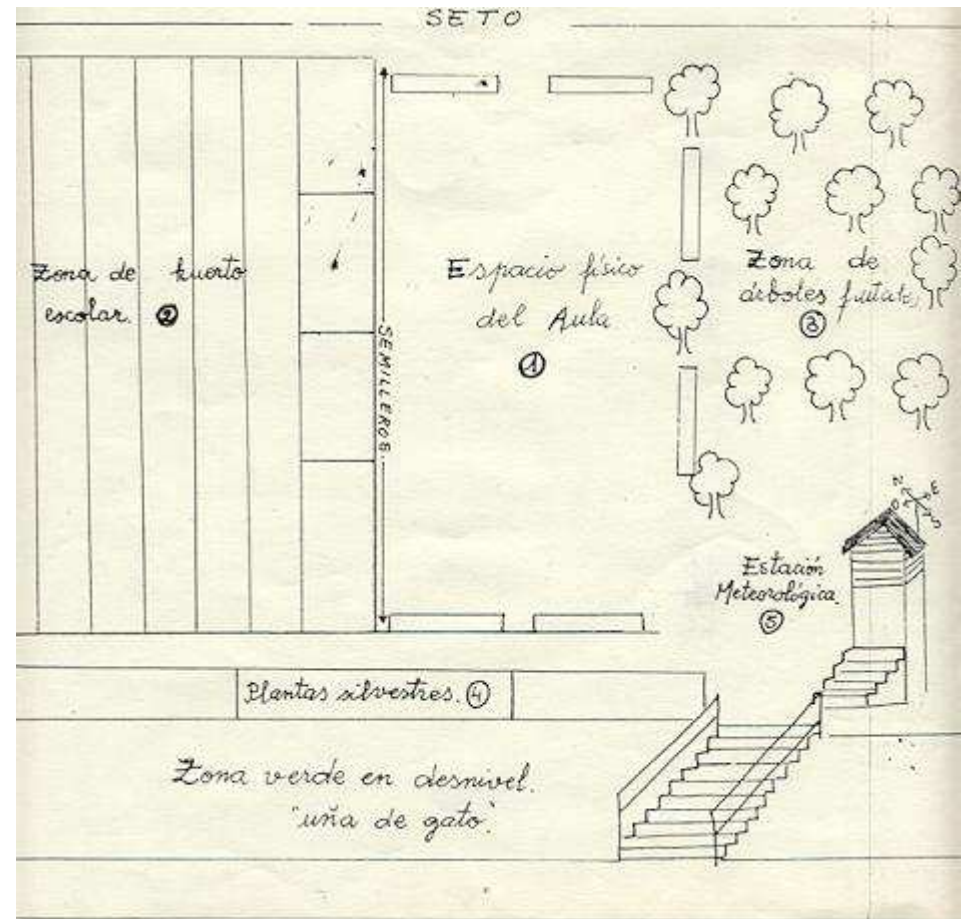 SETO
Zona de huerto
escolar. 2
SEMILLEROS.
Espacio físico
del Aula.
1
Zona de
árboles frutales
3
N E
O S
Estación
Meteorológica.
5
Plantas silvestres. 4
Zona verde en desnivel.
"uña de gato".